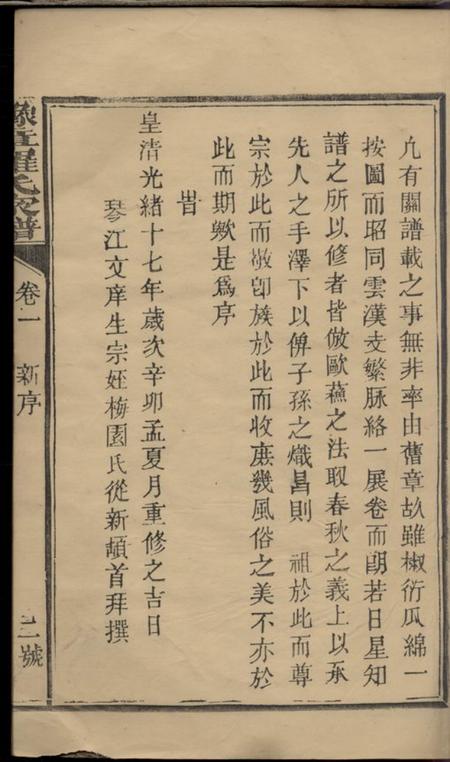 凢有關譜載之事無非率由舊章故雖椒衍瓜綿一
按圖而昭同雲漢支繁脉絡一展卷而朗若日星知
譜之所以修者皆倣歐蘓之法取春秋之義上以承
先人之手澤下以俾子孫之熾昌則　祖於此而尊
宗於此而敬卽族於此而收庶幾風俗之美不亦於
此而期歟是爲序
旹
皇清光緒十七年歲次辛卯孟夏月重修之吉日
琴江文庠生宗姪梅園氏從新頓首拜撰
豫章羅氏家譜
卷一
新序
二號